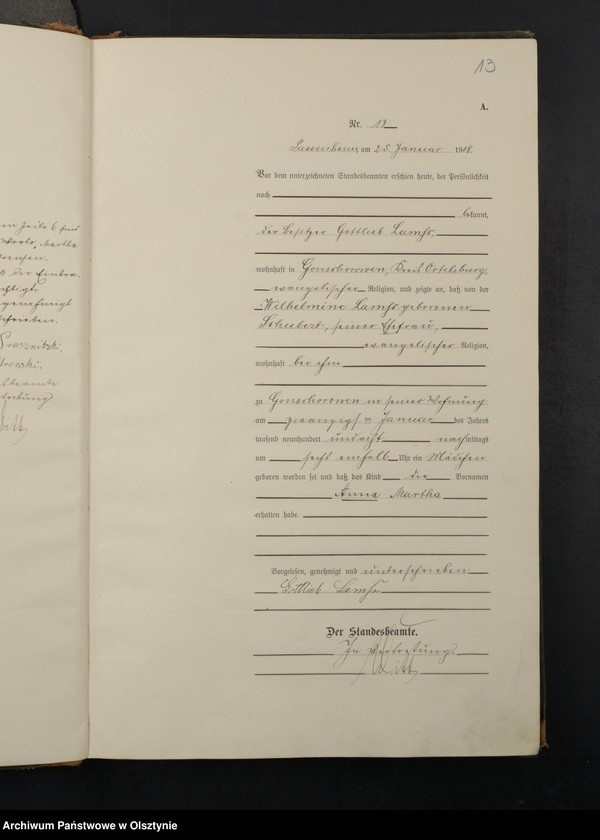 13
A.
Nr. 12
Passenheim am 25. Januar 1908.
Vor dem unterzeichneten Standesbeamten erschien heute, der Persönlichkeit
nach
bekannt,
der Besitzer Gottlieb
wohnhaft in Gonschorowen, Kreis Ortelsburg,
evangelischer Religion, und zeigte an, daß von der
Wilhelmine geborenen
Schubert, seiner Ehefrau,
evangelischer Religion,
wohnhaft bei ihm
zu Gonschorowen in seiner Wohnung
am Januar des Jahres
tausend neunhundert undacht nachmittags
um sechs einhalb Uhr ein Mädchen
geboren worden sei und daß das Kind die Vornamen
Anna Martha
erhalten habe.
Vorgelesen, genehmigt und unterschrieben
Gottlieb
Der Standesbeamte.
In Vertretung.
Zeile 6 sind
Martha
genehmigt
Archiwum Państwowe w Olsztynie